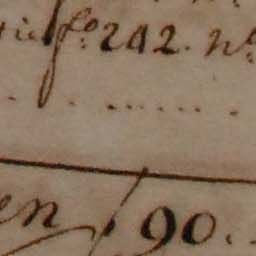 fo 242. No
en 90.